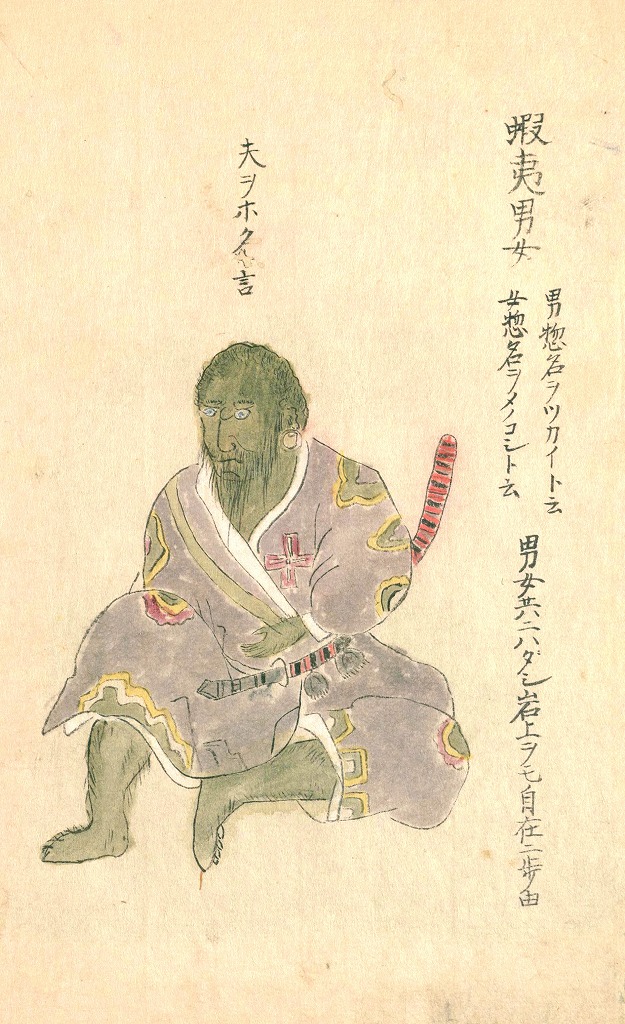 蝦夷男女
男惣名ヲツカイト云
女惣名ヲメノコシト云
男女共ニハダシ岩上ヲモ自在ニ歩由
夫ヲホク言